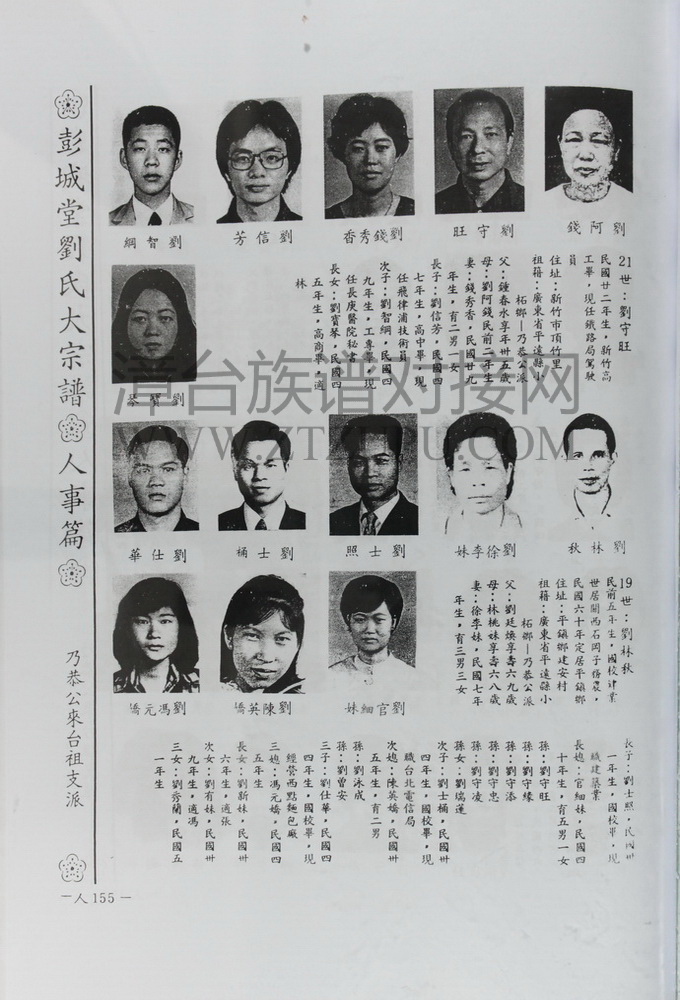 彭城堂劉氏大宗譜
人事篇
乃恭公來台祖支派
劉阿錢
劉守旺
劉錢秀香
劉信芳
劉智綱
劉寶琴
21世：劉守旺
民國廿二年生，新竹高
工畢，現任鐵路局駕駛
員
住址：新竹市頂竹里
祖籍：廣東省平遠縣小
柘鄉—乃恭公派
父：鍾春水享年卅五歲
母：劉阿錢民前二年生
妻：錢秀香，民國廿九
年生，育二男一女
長子：劉信芳，民國四
七年生，高中畢，現
任飛律浦技術員
次子：劉智綱，民國四
九年生，工專畢，現
任長庚醫院秘書
長女：劉寶琴，民國四
五年生，高商畢，適
林
劉林秋
劉徐李妹
劉士照
劉士桶
劉仕華
劉官細妹
劉陳英嬌
劉馮元嬌
19世：劉林秋
民前五年生，國校肄業
世居關西石岡子務農，
民國六十年定居平鎮鄉
住址：平鎮鄉建安村
祖籍：廣東省平遠縣小
柘鄉—乃恭公派
父：劉廷煥享壽六九歲
母：林桃妹享壽六八歲
妻：徐李妹，民國七年
年生，育三男三女
長子：劉士照，民國卅
一年生，國校畢，現
職建築業
長媳：官細妹，民國四
十年生，育五男一女
孫：劉守旺
孫：劉守緣
孫：劉守添
孫：劉守忠
孫：劉守凌
孫女：劉瑞蓮
次子：劉士桶，民國卅
四年生，國校畢，現
職台北電信局
次媳：陳英嬌，民國卅
五年生，育二男
孫：劉泳成
孫：劉曾安
三子：劉仕華，民國四
四年生，國校畢，現
經營西點麵包廠
三媳：馮元嬌，民國四
五年生
長女：劉新妹，民國卅
六年生，適張
次女：劉有妹，民國卅
九年生，適馮
三女：劉秀蘭，民國五
一年生
—人155—
漳台族谱对接网
WWW.ZTZUPU.COM